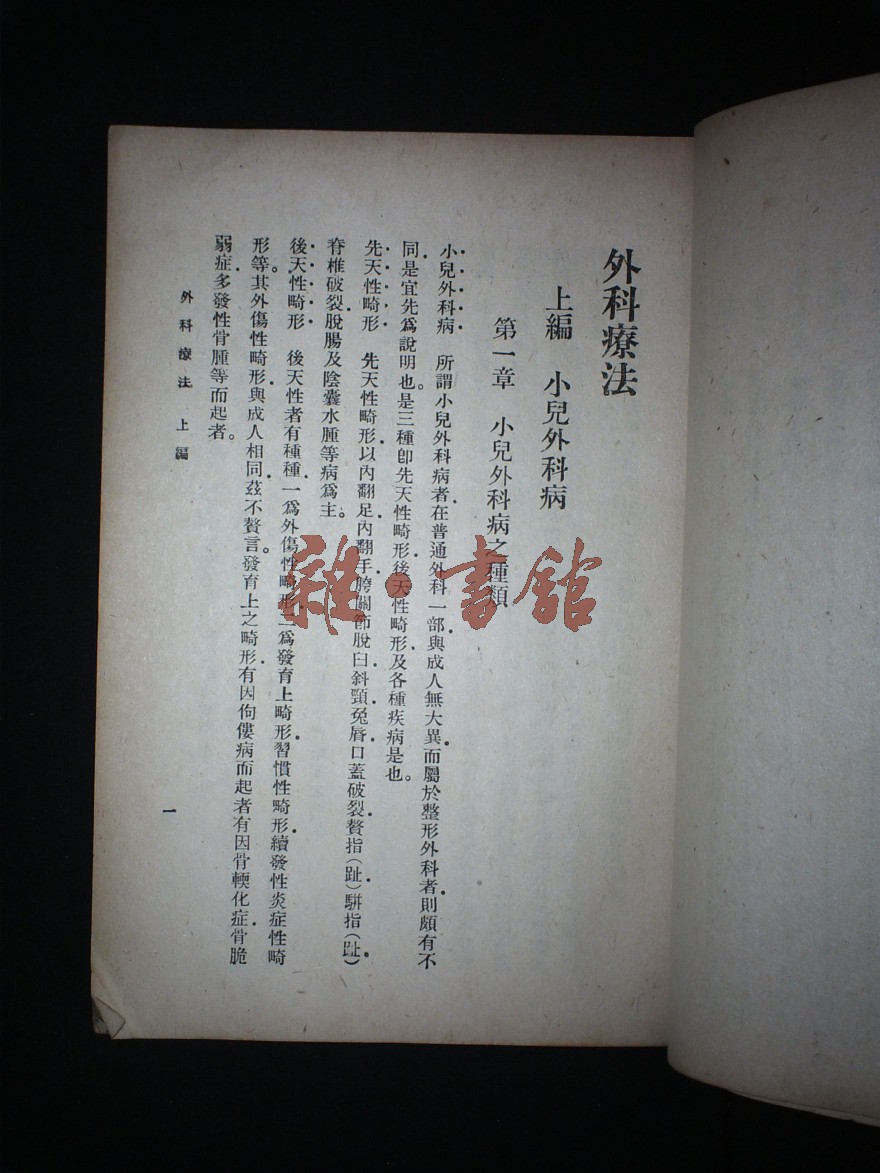 外科療法
上編 小兒外科病
第一章 小兒外科病之種類
小兒外科病 所謂小兒外科病者在普通外科一部與成人無大異而屬於整形外科者則頗有不
同是宜先爲說明也。是三種卽先天性畸形後天性畸形及各種疾病是也。
先天性畸形 先天性畸形以內翻足內翻手胯關節脫臼斜頸兔唇口蓋破裂贅指(趾)駢指(趾)
脊椎破裂脫腸及陰囊水腫等病爲主。
後天性畸形 後天性者有種種一爲外傷性畸形二爲發育上畸形習慣性畸形續發性炎症性畸
形等。其外傷性畸形與成人相同茲不贅言。發育上之畸形有因佝僂病而起者有因骨輭化症骨脆
弱症多發性骨腫等而起者。
外科療法 上編
一
雜·書館